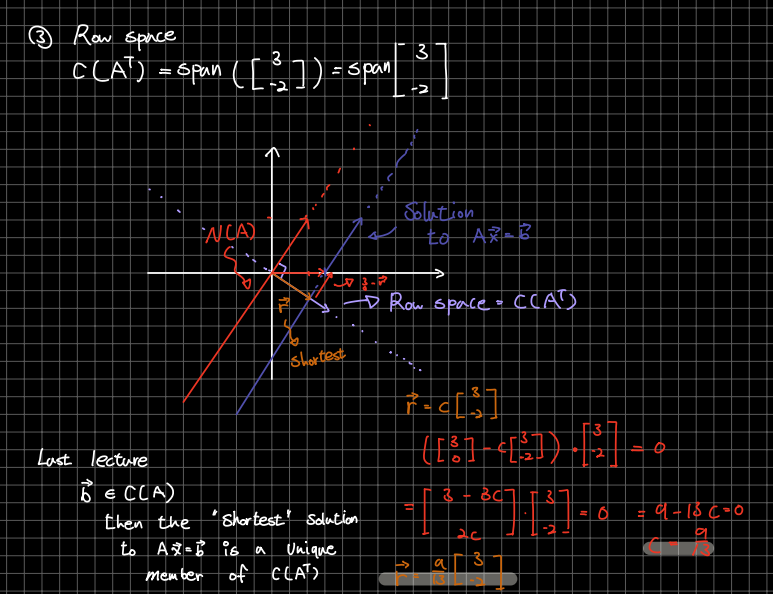 ③ Row space
C(Aᵀ) = span ([3 -2]) = span [3 -2]
N(A)
Solution
to Ax⃗ = b⃗
Row space = C(Aᵀ)
r⃗
Shortest
r⃗ = c [3 -2]
([3 0] - c[3 -2]) · [3 -2] = 0
= [3 - 3c 2c] · [3 -2] = 0 = 9 - 13c = 0
c = 9/13
r⃗ = 9/13 [3 -2]
Last lecture
b⃗ ∈ C(A)
then the "Shortest" Solution
to Ax⃗ = b⃗ is a unique
member of C(Aᵀ)